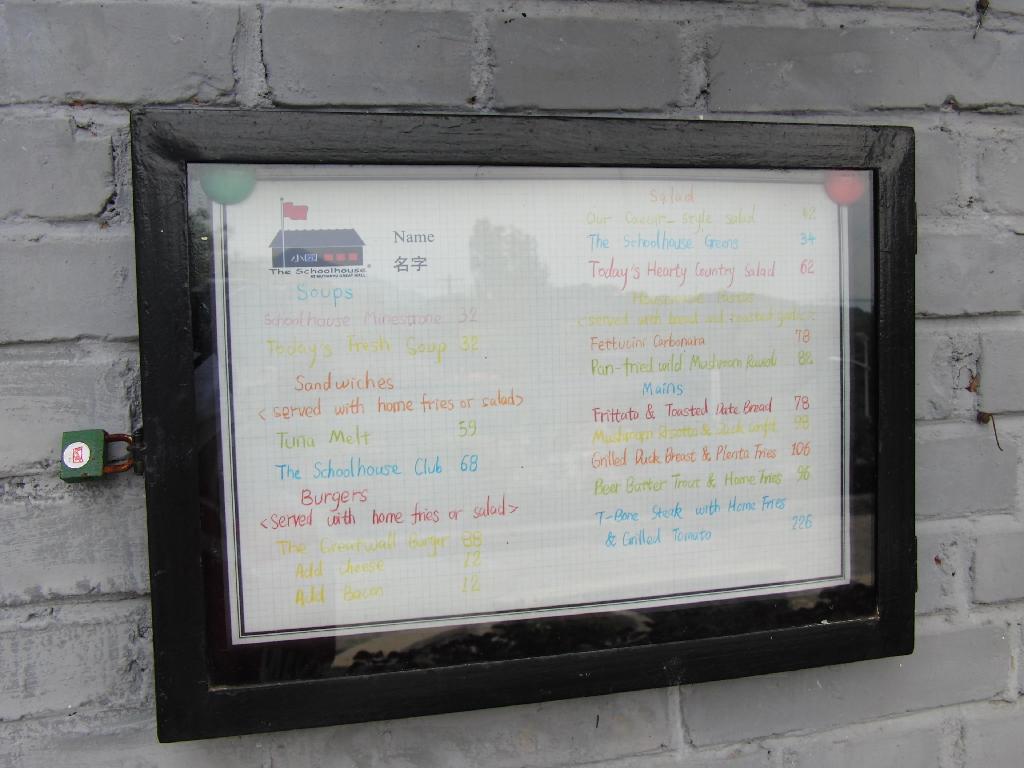 小园
The Schoolhouse
AT MUTIANYU GREAT WALL
Name
名字
Soups
Schoolhouse Minestrone 32
Today's Fresh Soup 32
Sandwiches
<served with home fries or salad>
Tuna Melt 59
The Schoolhouse Club 68
Burgers
<served with home fries or salad>
The Greatwall Burger 88
Add Cheese 12
Add Bacon 12
Salad
Our Caesar-style salad 42
The Schoolhouse Greens 34
Today's Hearty Country Salad 62
Housemade Pastas
<served with bread and roasted garlic>
Fettucini Carbonara 78
Pan-fried wild Mushroom Ravioli 88
Mains
Frittata & Toasted Date Bread 78
Mushroom Risotto & Duck confit 98
Grilled Duck Breast & Plenta Fries 106
Beer Batter Trout & Home Fries 96
T-Bone Steak with Home Fries
& Grilled Tomato 226